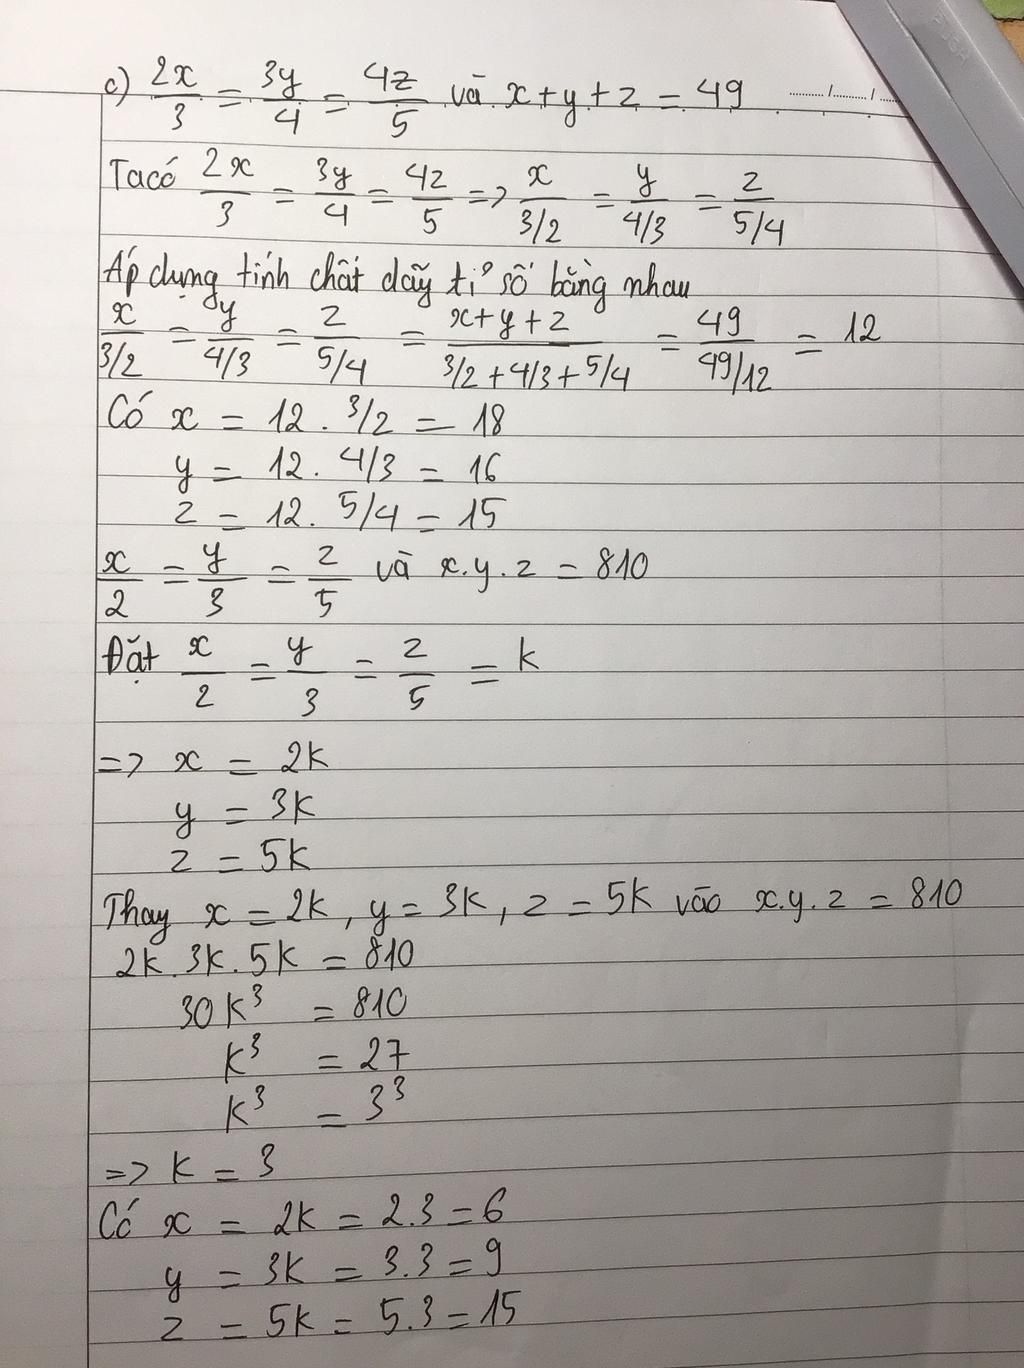 c) 2x/3 = 3y/4 = 4z/5 và x+y+z = 49
Ta có 2x/3 = 3y/4 = 4z/5 => x/3/2 = y/4/3 = z/5/4
Áp dụng tính chất dãy tỉ số bằng nhau
x/3/2 = y/4/3 = z/5/4 = x+y+z/3/2+4/3+5/4 = 49/49/12 = 12
Có x = 12 . 3/2 = 18
y = 12. 4/3 = 16
z = 12. 5/4 = 15
x/2 = y/3 = z/5 và x.y.z = 810
Đặt x/2 = y/3 = z/5 = k
=> x = 2k
y = 3k
z = 5k
Thay x = 2k, y = 3k, z = 5k vào x.y.z = 810
2k.3k.5k = 810
30k³ = 810
k³ = 27
k³ = 3³
=> k = 3
Có x = 2k = 2.3 = 6
y = 3k = 3.3 = 9
z = 5k = 5.3 = 15